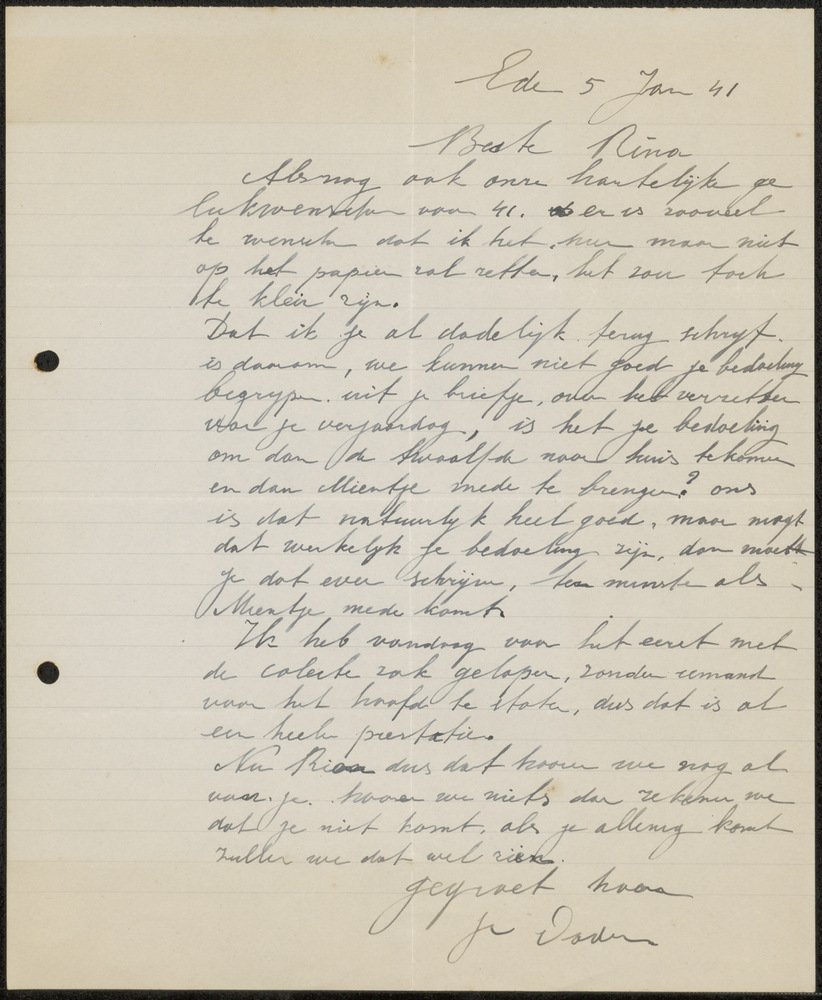 Ede 5 Jan 41
Beste Rina
Alsnog ook onze hartelijke ge
lukwenschen voor 41. er is zooveel
te wenschen dat ik het hier maar niet
op het papier zal zetten, het zou toch
te klein zijn.
Dat ik je al dadelijk terug schryf.
is daarom, we kunnen niet goed je bedoeling
begrypen uit je briefje, over het verzetten
van je verjaardag, is het je bedoeling
om dan de twaalfde naar huis te komen
en dan Mientje mede te brengen? ons
is dat natuurlyk heel goed, maar mogt
dat werkelyk je bedoeling zijn, dan moet
je dat even schrijven, ten minste als
Mientje mede komt.
Ik heb vandaag voor het eerst met
de colecte zak gelopen, zonder iemand
voor het hoofd te stoten, dus dat is al
een heele prestatie.
Nu Rina dus dat hooren we nog al
van je. hooren we niets dan rekenen we
dat je niet komt, als je allenig komt
zullen we dat wel zien.
gegroet hoor
je Vader